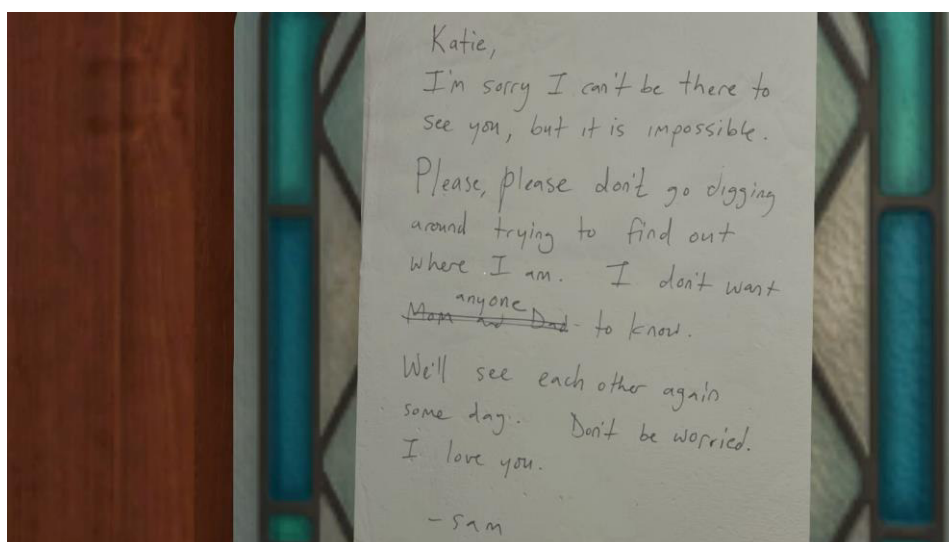 Katie,
I'm sorry I can't be there to
see you, but it is impossible.
Please, please don't go digging
around trying to find out
where I am. I don't want
anyone
Mom and Dad to know.
We'll see each other again
some day. Don't be worried.
I love you.
-Sam